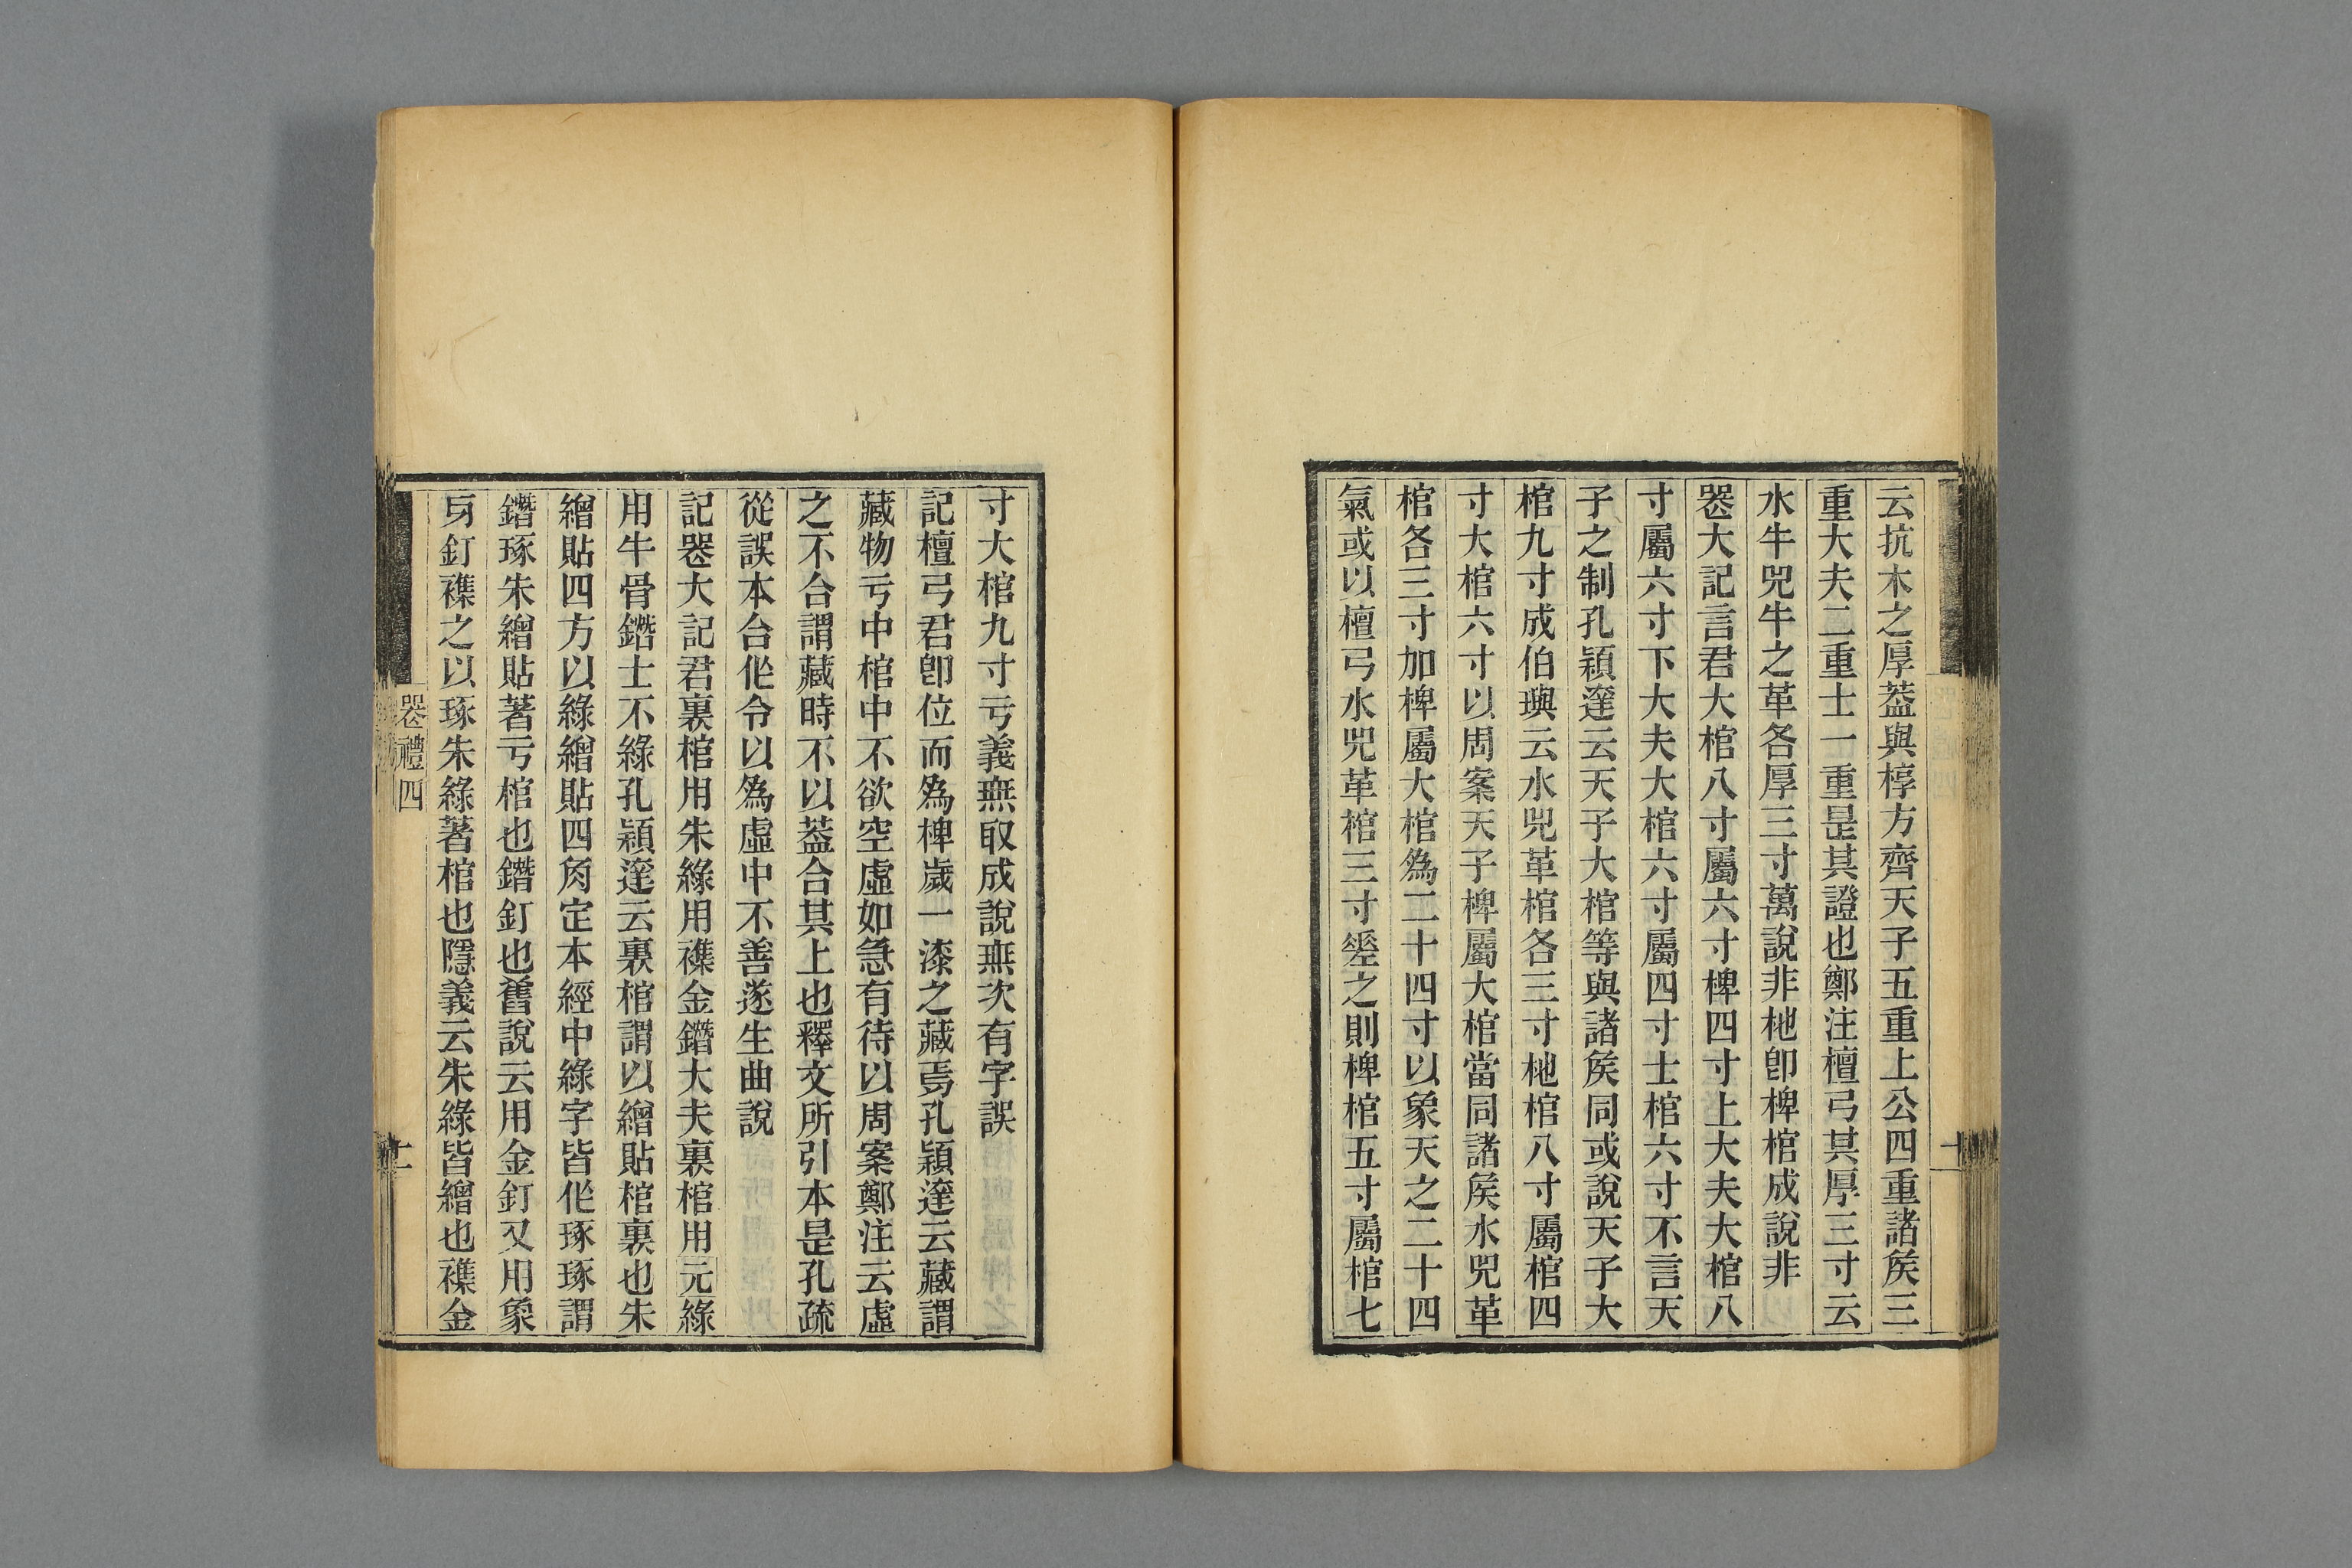 云抗木之厚葢與椁方齊天子五重上公四重諸矦三
重大夫二重士一重是其證也鄭注檀弓其厚三寸云
水牛兕牛之革各厚三寸萬說非杝卽椑棺成說非
喪大記言君大棺八寸屬六寸椑四寸上大夫大棺八
寸屬六寸下大夫大棺六寸屬四寸士棺六寸不言天
子之制孔穎達云天子大棺等與諸矦同或說天子大
棺九寸成伯璵云水兕革棺各三寸杝棺八寸屬棺四
寸大棺六寸以周案天子椑屬大棺當同諸矦水兕革
棺各三寸加椑屬大棺爲二十四寸以象天之二十四
氣或以檀弓水兕革棺三寸㘸之則椑棺五寸屬棺七
寸大棺九寸亏義無取成說無次有字誤
記檀弓君卽位而爲椑歲一漆之藏焉孔穎達云藏謂
藏物亏中棺中不欲空虛如急有待以周案鄭注云虛
之不合謂藏時不以葢合其上也釋文所引本是孔疏
從誤本合作令以爲虛中不善遂生曲說
記喪大記君裏棺用朱綠用襍金鐕大夫裏棺用元綠
用牛骨鐕士不綠孔穎達云裏棺謂以繒貼棺裏也朱
繒貼四方以綠繒貼四𧢲定本經中綠字皆作琢琢謂
鐕琢朱繒貼著亏棺也鐕釘也舊說云用金釘又用象
㠯釘襍之以琢朱綠著棺也隱義云朱綠皆繒也襍金
喪禮四
十